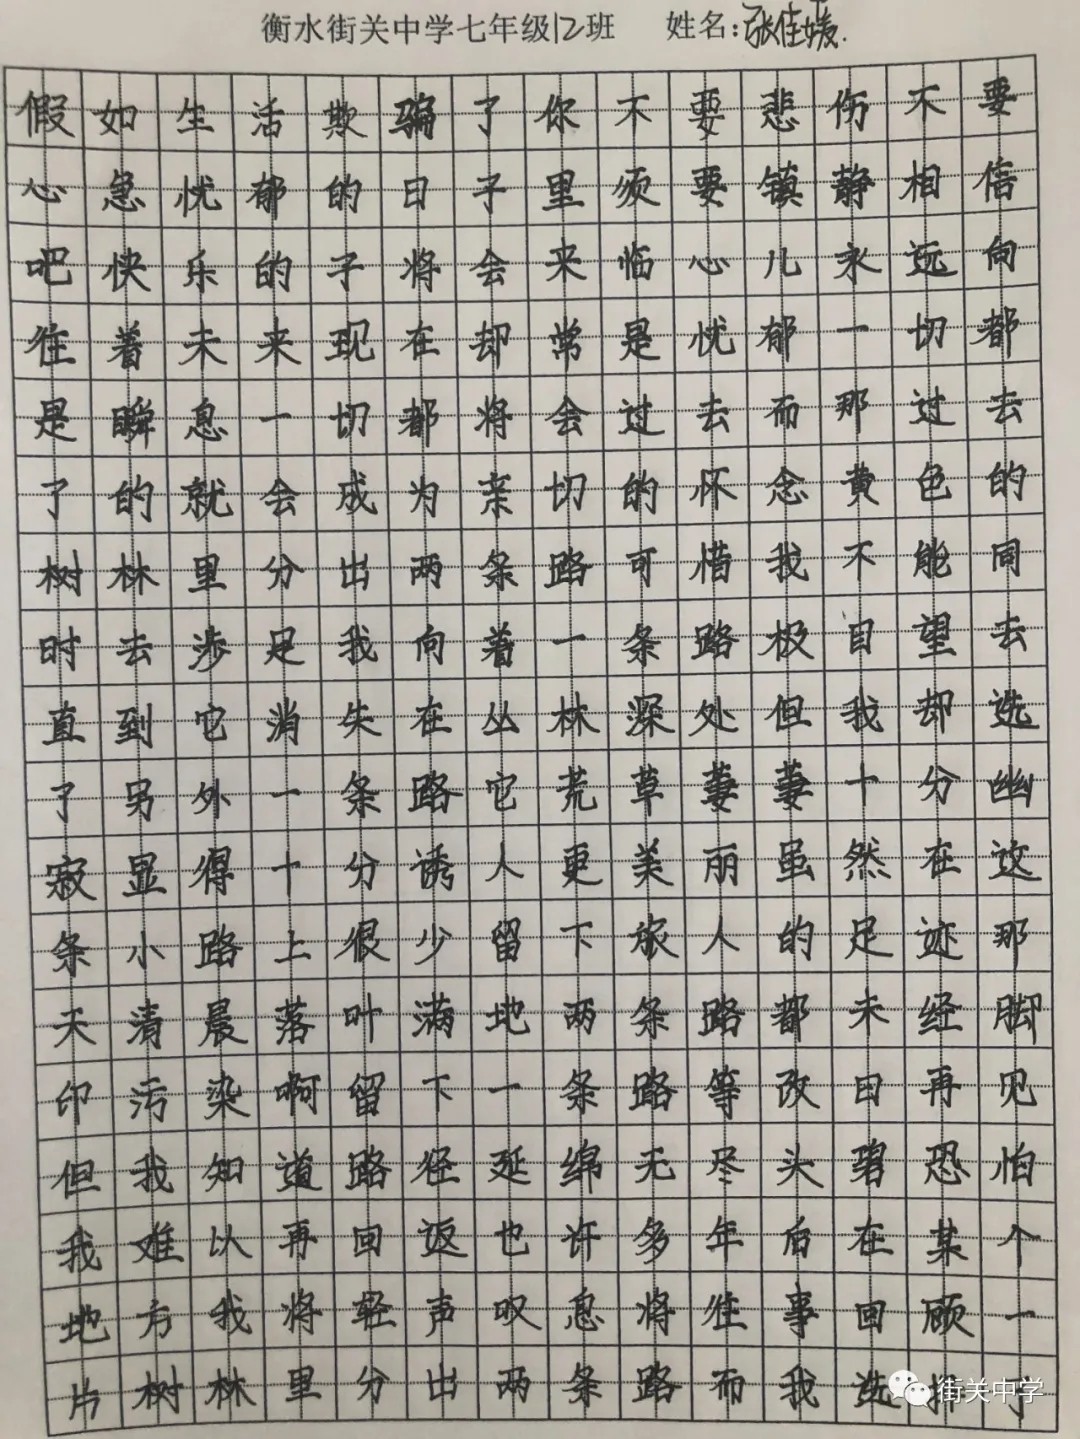 衡水街关中学七年级12班 姓名:张佳媛.
假如生活欺骗了你不要悲伤不要
心急忧郁的日子里须要镇静相信
吧快乐的子将会来临心儿永远向
往着未来现在却常是忧郁一切都
是瞬息一切都将会过去而那过去
了的就会成为亲切的怀念黄色的
树林里分出两条路可惜我不能同
时去涉足我向着一条路极目望去
直到它消失在丛林深处但我却选
了另外一条路它荒草萋萋十分幽
寂显得十分诱人更美丽虽然在这
条小路上很少留下旅人的足迹那
天清晨落叶满地两条路都未经脚
印污染啊留下一条路等改日再见
但我知道路径延绵无尽头恐怕
我难以再回返也许多年后在某个
地方我将轻声叹息将往事回顾一
片树林里分出两条路而我选择了
街关中学